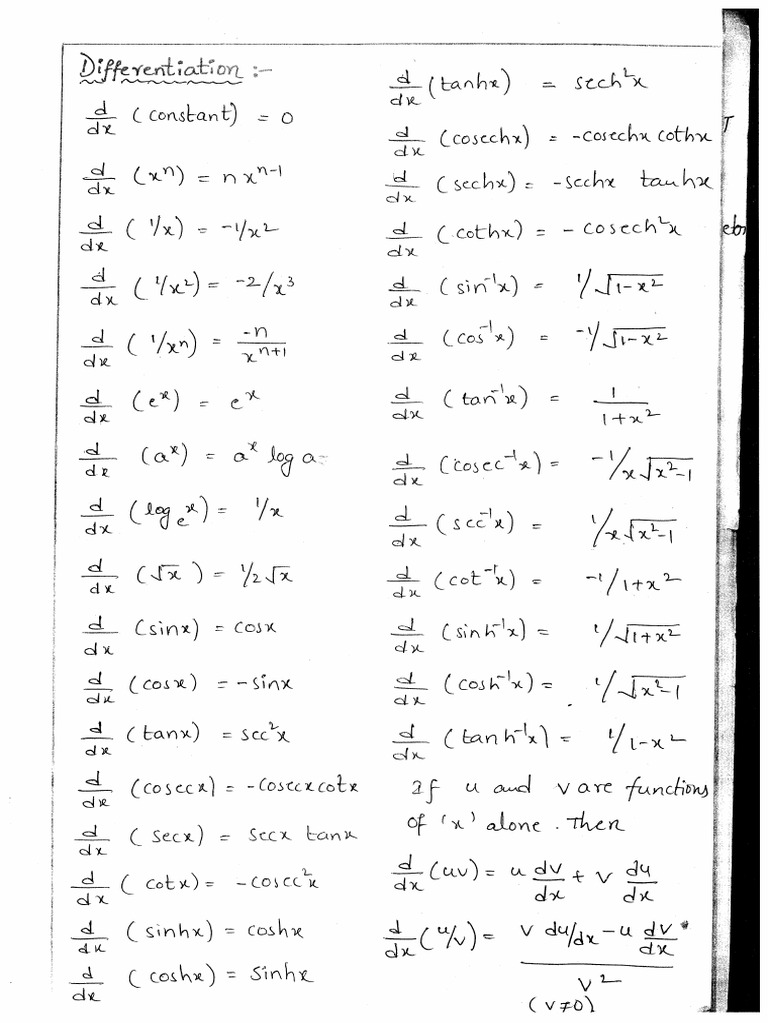 Differentiation :-
d/dx (constant) = 0
d/dx (xⁿ) = n xⁿ⁻¹
d/dx (1/x) = -1/x²
d/dx (1/x²) = -2/x³
d/dx (1/xⁿ) = -n/xⁿ⁺¹
d/dx (eˣ) = eˣ
d/dx (aˣ) = aˣ log a
d/dx (logₑx) = 1/x
d/dx (√x) = 1/2√x
d/dx (sinx) = cosx
d/dx (cosx) = -sinx
d/dx (tanx) = sec²x
d/dx (cosecx) = -cosecxcotx
d/dx (secx) = secx tanx
d/dx (cotx) = -cosec²x
d/dx (sinhx) = coshx
d/dx (coshx) = sinhx
d/dx (tanhx) = sech²x
d/dx (cosechx) = -cosechx cothx
d/dx (sechx) = -sechx tanhx
d/dx (cothx) = -cosech²x
d/dx (sin⁻¹x) = 1/√1-x²
d/dx (cos⁻¹x) = -1/√1-x²
d/dx (tan⁻¹x) = 1/1+x²
d/dx (cosec⁻¹x) = -1/x√x²-1
d/dx (sec⁻¹x) = 1/x√x²-1
d/dx (cot⁻¹x) = -1/1+x²
d/dx (sinh⁻¹x) = 1/√1+x²
d/dx (cosh⁻¹x) = 1/√x²-1
d/dx (tanh⁻¹x) = 1/1-x²
If u and v are functions
of 'x' alone. Then
d/dx (uv) = u dv/dx + v du/dx
d/dx (u/v) = v du/dx - u dv/dx / v²
(v≠0)